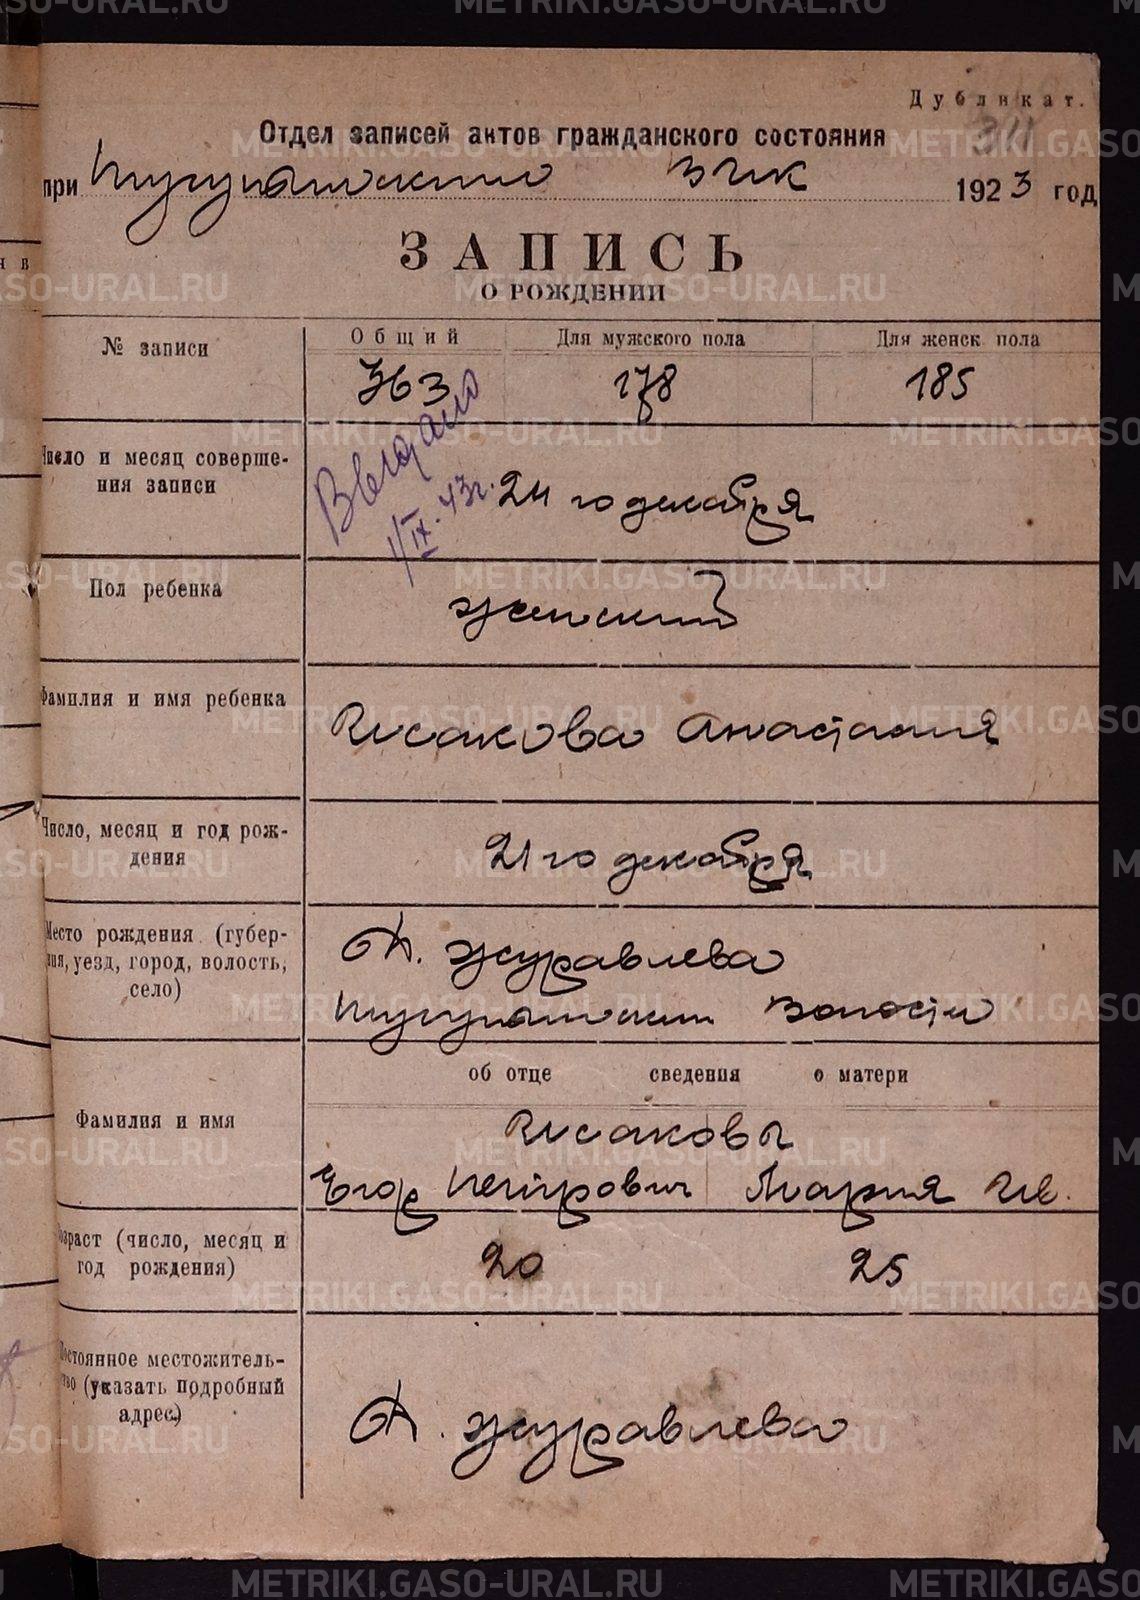 Дубликат.
311
Отдел записей актов гражданского состояния
при Тугулымским ВИК 1923 год
ЗАПИСЬ
О РОЖДЕНИИ
№ записи
Общий Для мужского пола Для женск пола
363 178 185
Выдано
1/IX.43г.
Число и месяц соверше-
ния записи
24 го декабря
Пол ребенка
женский
Фамилия и имя ребенка
Исакова Анастасия
Число, месяц и год рож-
дения
21 го декабря
Место рождения (губер-
ния, уезд, город, волость,
село)
Д. Журавлева
волости
об отце сведения о матери
Фамилия и имя
Исаковы
Егор Петрович Мария Ив.
Возраст (число, месяц и
год рождения)
20 25
Постоянное местожитель-
ство (указать подробный
адрес)
Д. Журавлева
METRIKI.GASO-URAL.RU